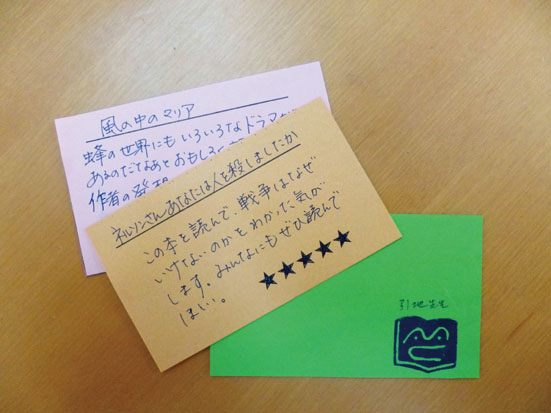 風の中のマリア
蜂の世界にもいろいろなドラマが
あるのだなあとおもしろ
作者の発想
ネルソンさんあなたは人を殺しましたか
この本を読んで、戦争はなぜ
いけないのかとわかった気が
します。みんなにもぜひ読んで
ほしい。
★★★★★
引地先生